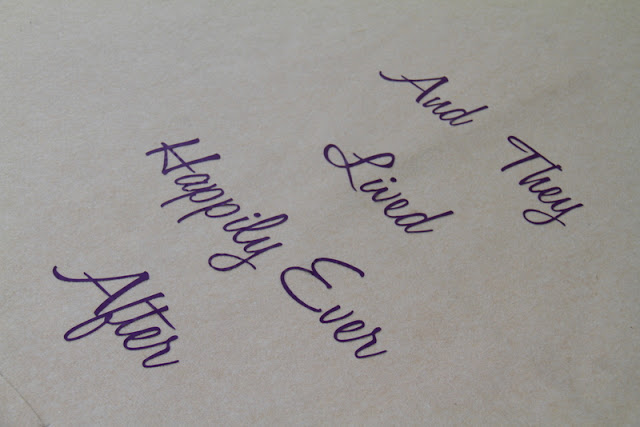 And They
Lived
Happily Ever
After